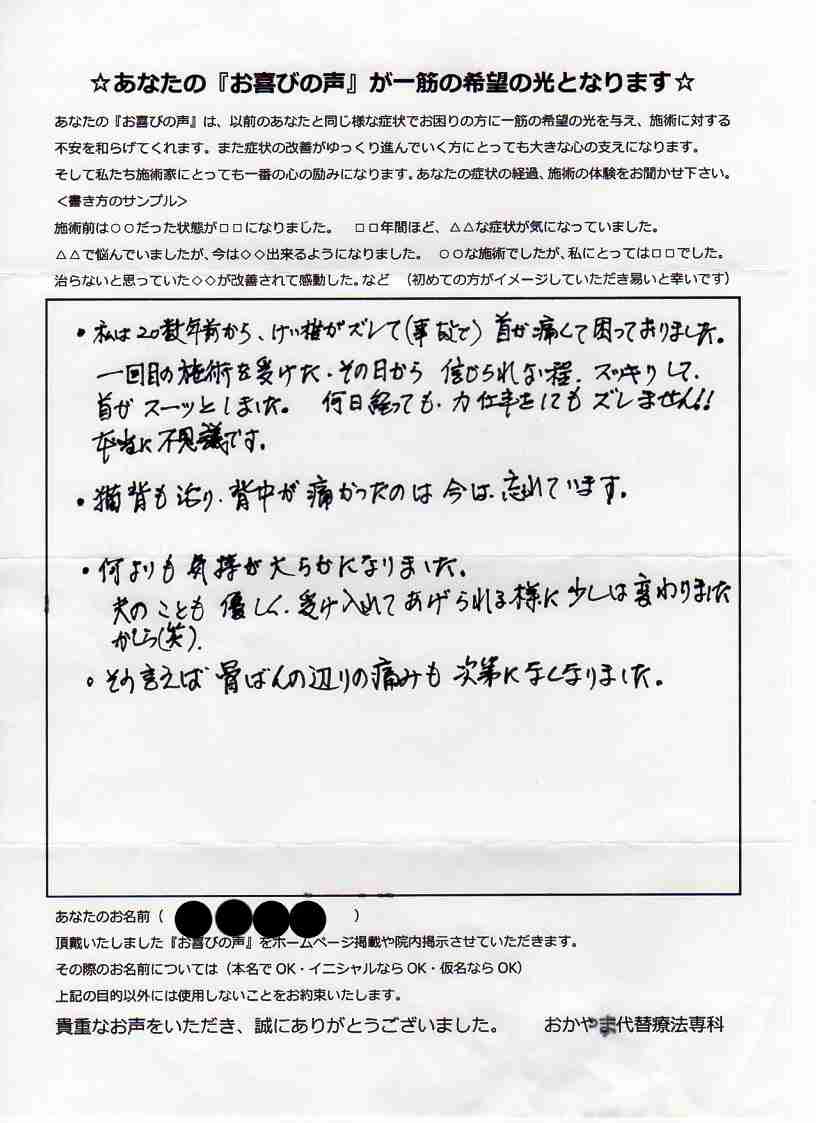 ☆あなたの『お喜びの声』が一筋の希望の光となります☆
あなたの『お喜びの声』は、以前のあなたと同じ様な症状でお困りの方に一筋の希望の光を与え、施術に対する
不安を和らげてくれます。また症状の改善がゆっくり進んでいく方にとっても大きな心の支えになります。
そして私たち施術家にとっても一番の心の励みになります。あなたの症状の経過、施術の体験をお聞かせ下さい。
＜書き方のサンプル＞
施術前は○○だった状態が□□になりました。 □□年間ほど、△△な症状が気になっていました。
△△で悩んでいましたが、今は◇◇出来るようになりました。 ○○な施術でしたが、私にとっては□□でした。
治らないと思っていた◇◇が改善されて感動した。など （初めての方がイメージしていただき易いと幸いです）
・私は20数年前から、けい椎がズレて(事故で) 首が痛くて困っておりました。
一回目の施術を受けた、その日から 信じられない程、スッキリして、
首がスーッとしました。 何日経っても、力仕事をしてもズレません!!
本当に不思議です。
・猫背も治り、背中が痛かったのは今は、忘れています。
・何よりも気持が大らかになりました。
夫のことも優しく、受け入れてあげられる様に少しは変わりました
かしら(笑)。
。そう言えば骨ばんの辺りの痛みも次第になくなりました。
あなたのお名前（ ）
頂戴いたしました『お喜びの声』をホームページ掲載や院内掲示させていただきます。
その際のお名前については（本名でOK・イニシャルならOK・仮名ならOK）
上記の目的以外には使用しないことをお約束いたします。
貴重なお声をいただき、誠にありがとうございました。 おかやま代替療法専科